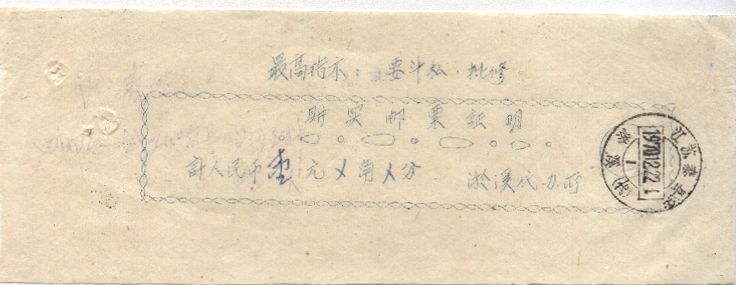 最高指示：要斗私.批修。
购买邮票証明
計人民币壹元乂角乂分 淤溪代办所
江苏泰县
1970.12.22
1
淤溪(代)